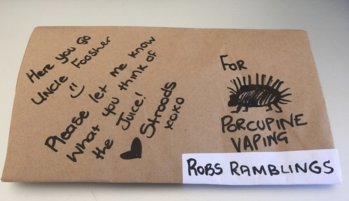 Here you go
Uncle Foosher
Please let me know
What you think of
the Juice!
Stroods
xoxo
For
PORCUPINE
VAPING
ROBS RAMBLINGS